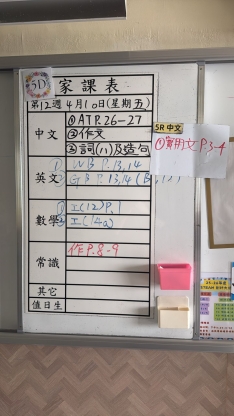 5D
家課表
第12週 4月10日(星期五)
中文
①ATP.26-27
②作文
③詞(八)及造句
英文
① WB P.13,14
② GB P.13,14
數學
① 工(12)P.1
② 工(14a)
常識
作P.8-9
其它
值日生
5R 中文
①實用文 P.3-4